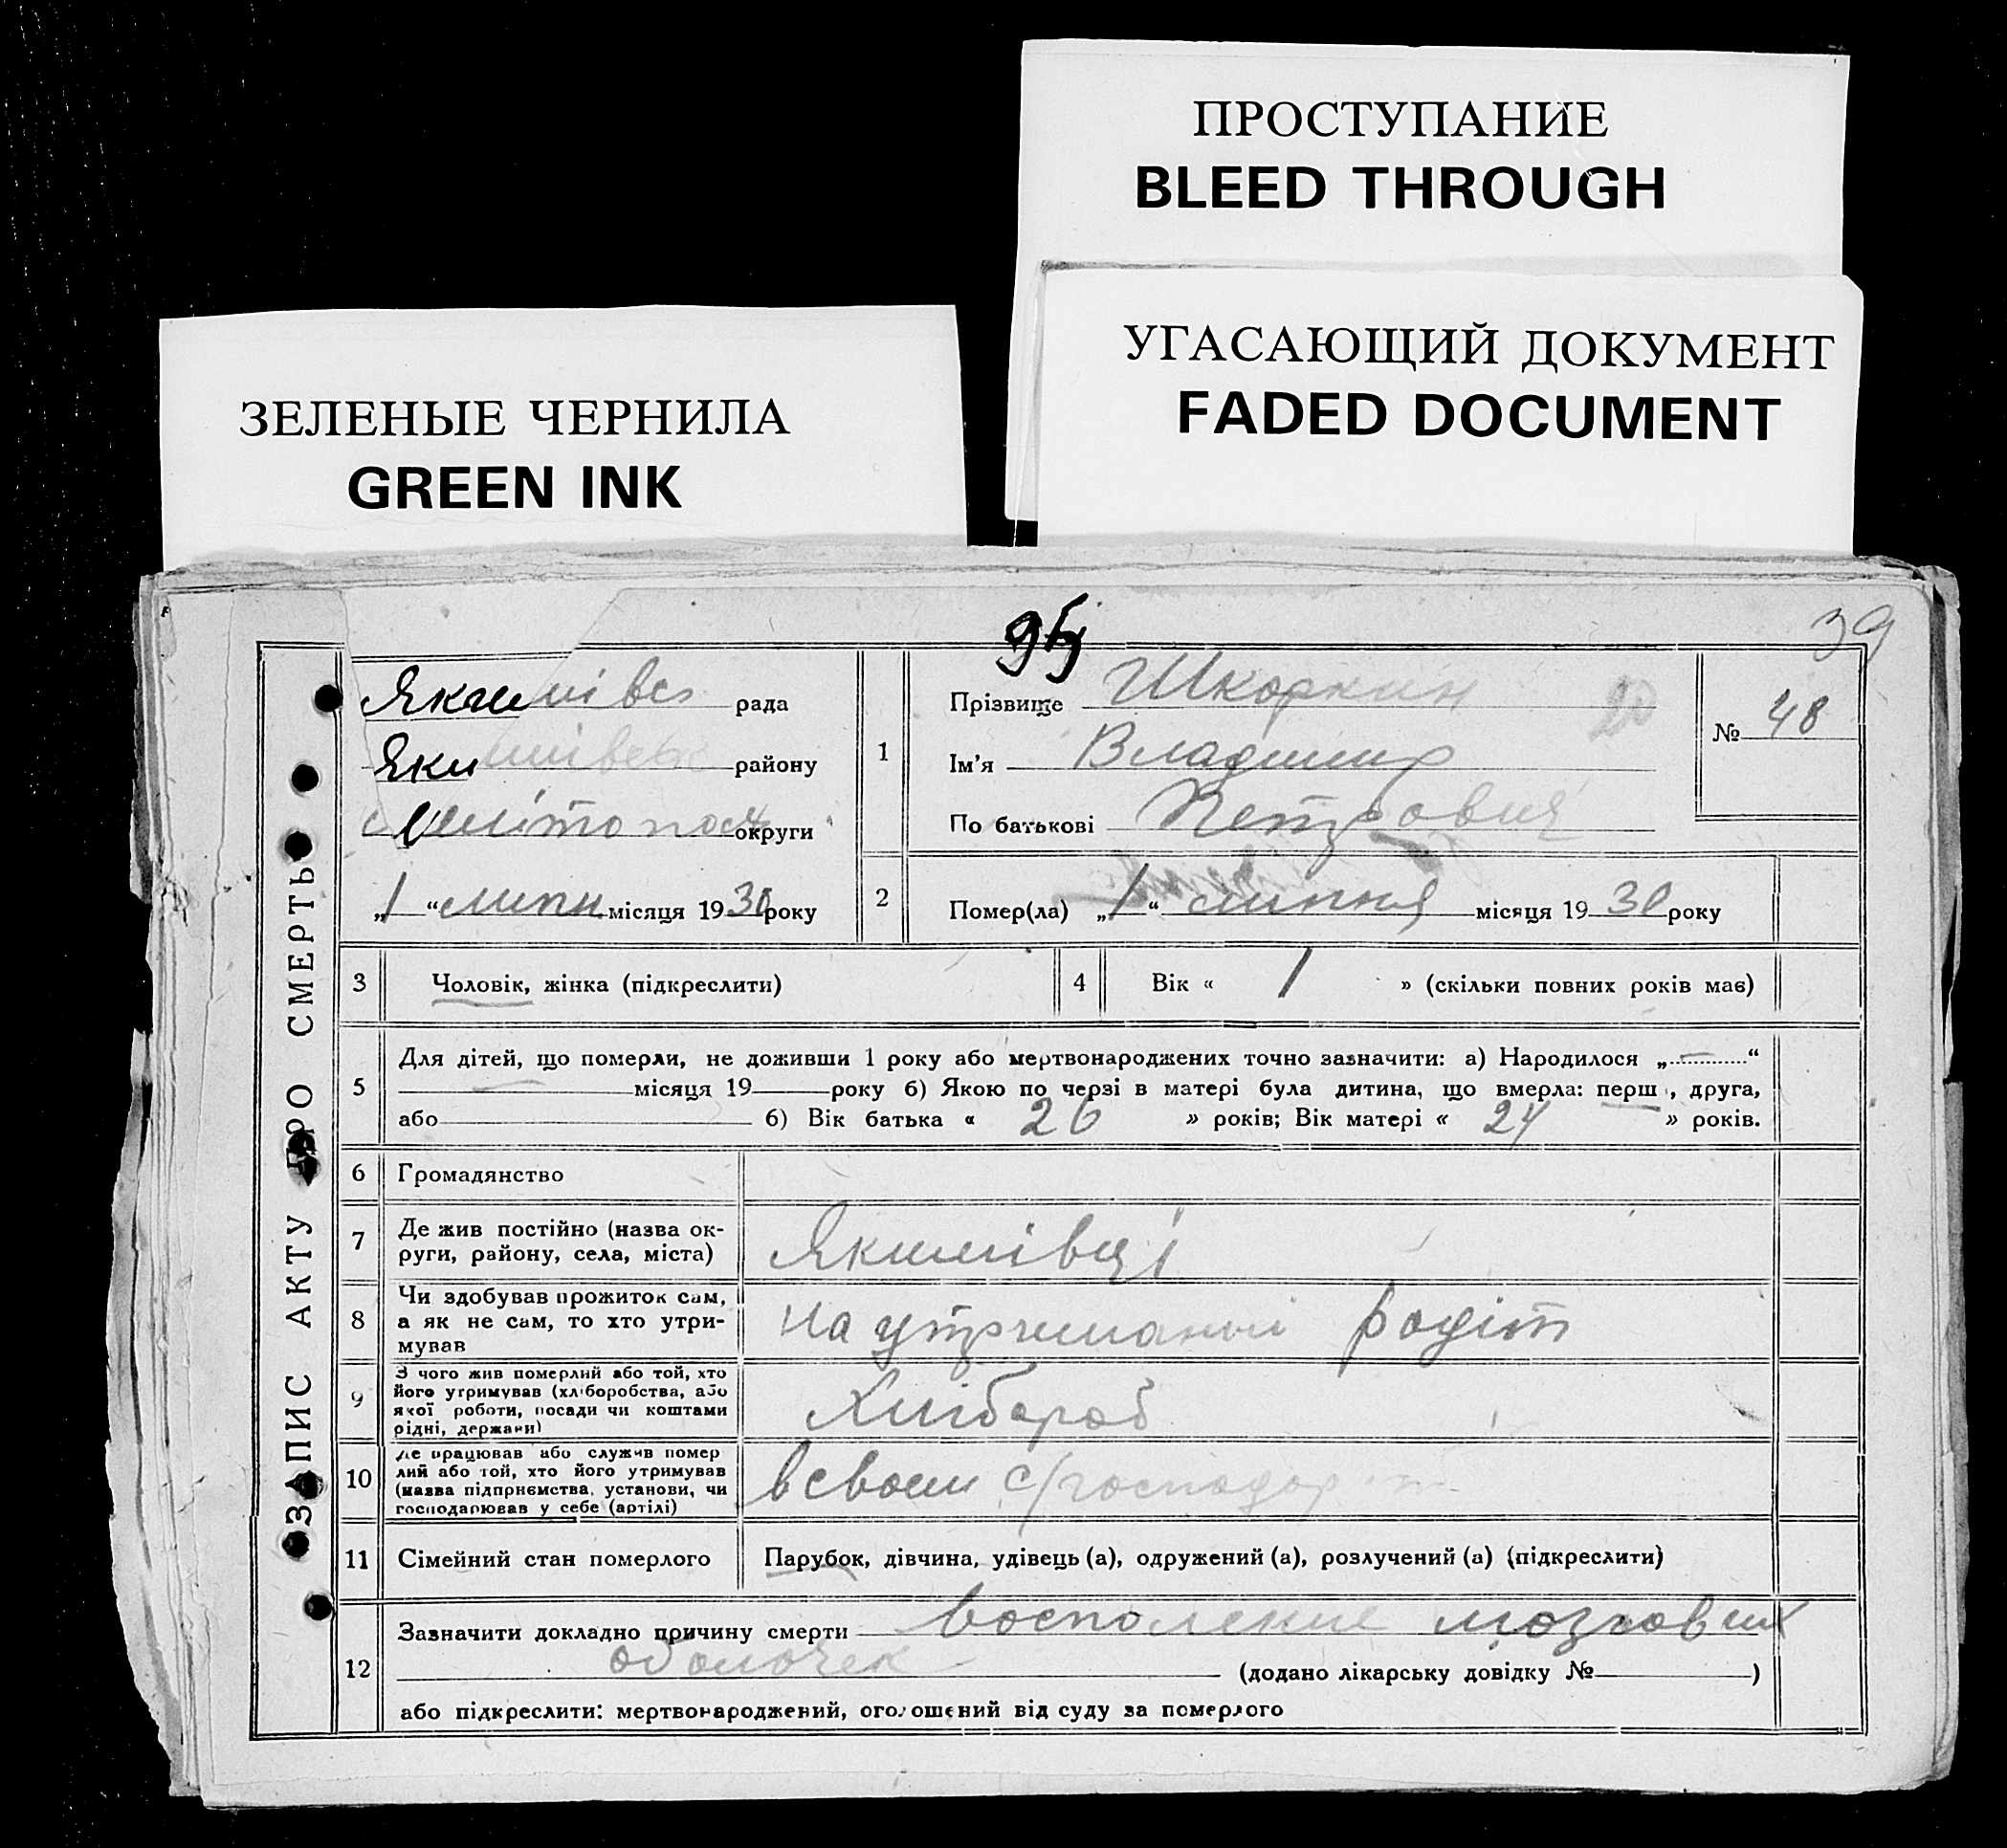 ПРОСТУПАНИЕ
BLEED THROUGH
УГАСАЮЩИЙ ДОКУМЕНТ
FADED DOCUMENT
ЗЕЛЕНЫЕ ЧЕРНИЛА
GREEN INK
39
95
ЗАПИС АКТУ ПРО СМЕРТЬ
Якимівсь рада
Якимівськ району
Мелітопол округи
„1“ липн місяця 1930 року
1
Прізвище Шкоркин
20
Ім'я Владимир
По батькові Петрович
№ 48
2
Помер(ла) „1“ липня місяця 1930 року
3 Чоловік, жінка (підкреслити)
4 Вік « 1 » (скільки повних років має)
5
Для дітей, що померли, не доживши 1 року або мертвонароджених точно зазначити: а) Народилося „—“
— місяця 19 року б) Якою по черзі в матері була дитина, що вмерла: перш, друга,
або б) Вік батька « 26 » років; Вік матері « 24 » років.
6 Громадянство
7 Де жив постійно (назва ок-
руги, району, села, міста)
Якимівці
8 Чи здобував прожиток сам,
а як не сам, то хто утри-
мував
на утриманні родіт
9 З чого жив померлий або той, хто
його утримував (хліборобства, або
якої роботи, посади чи коштами
рідні, держави)
Хлібороб
10 Де працював або служив помер
лий або той, хто його утримував
(назва підприємства, установи, чи
господарював у себе (артілі)
в своем с/господар
11 Сімейний стан померлого
Парубок, дівчина, удівець (а), одружений (а), розлучений (а) (підкреслити)
12
Зазначити докладно причину смерти восполение мозговых
оболочек (додано лікарську довідку № )
або підкреслити: мертвонароджений, оголошений від суду за померлого